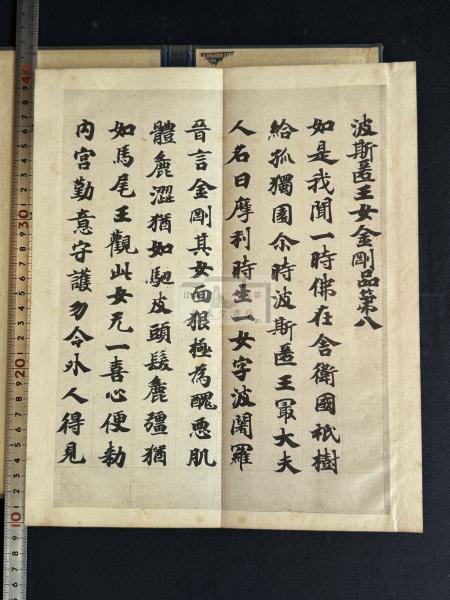 波斯匿王女金剛品第八
如是我聞一時佛在舍衛國祇樹
給孤獨園尒時波斯匿王冣大夫
人名曰摩利時生一女字波闍羅
晉言金剛其女面狠極為醜惡肌
體麁澀猶如馳皮頭髮麁彊猶
如馬尾王觀此女无一喜心便勑
內宮勤意守護勿令外人得見
40
30
20
10